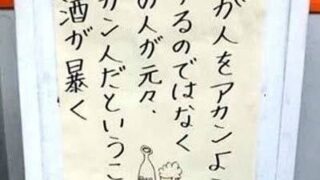 が人をアカンよう
するのではなく
の人が元々、
カン人だというこ
酒が暴く